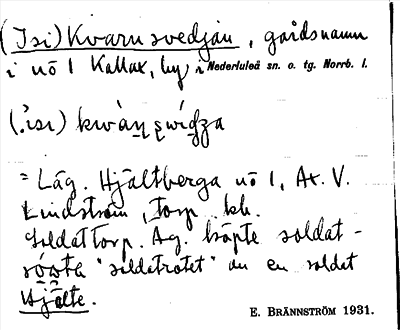 (Isi) Kvarnsvedjan, gårdsnamn
i nö 1 Kallax, by i Nederluleå sn. o. tg. Norrb. l.
= Läg. Hjältberga nö 1, Ax. V.
Lindström, torp
Soldattorp. Äg. köpte soldat-
"soldatrotet" av en soldat
Hjälte.
E. BRÄNNSTRÖM 1931.